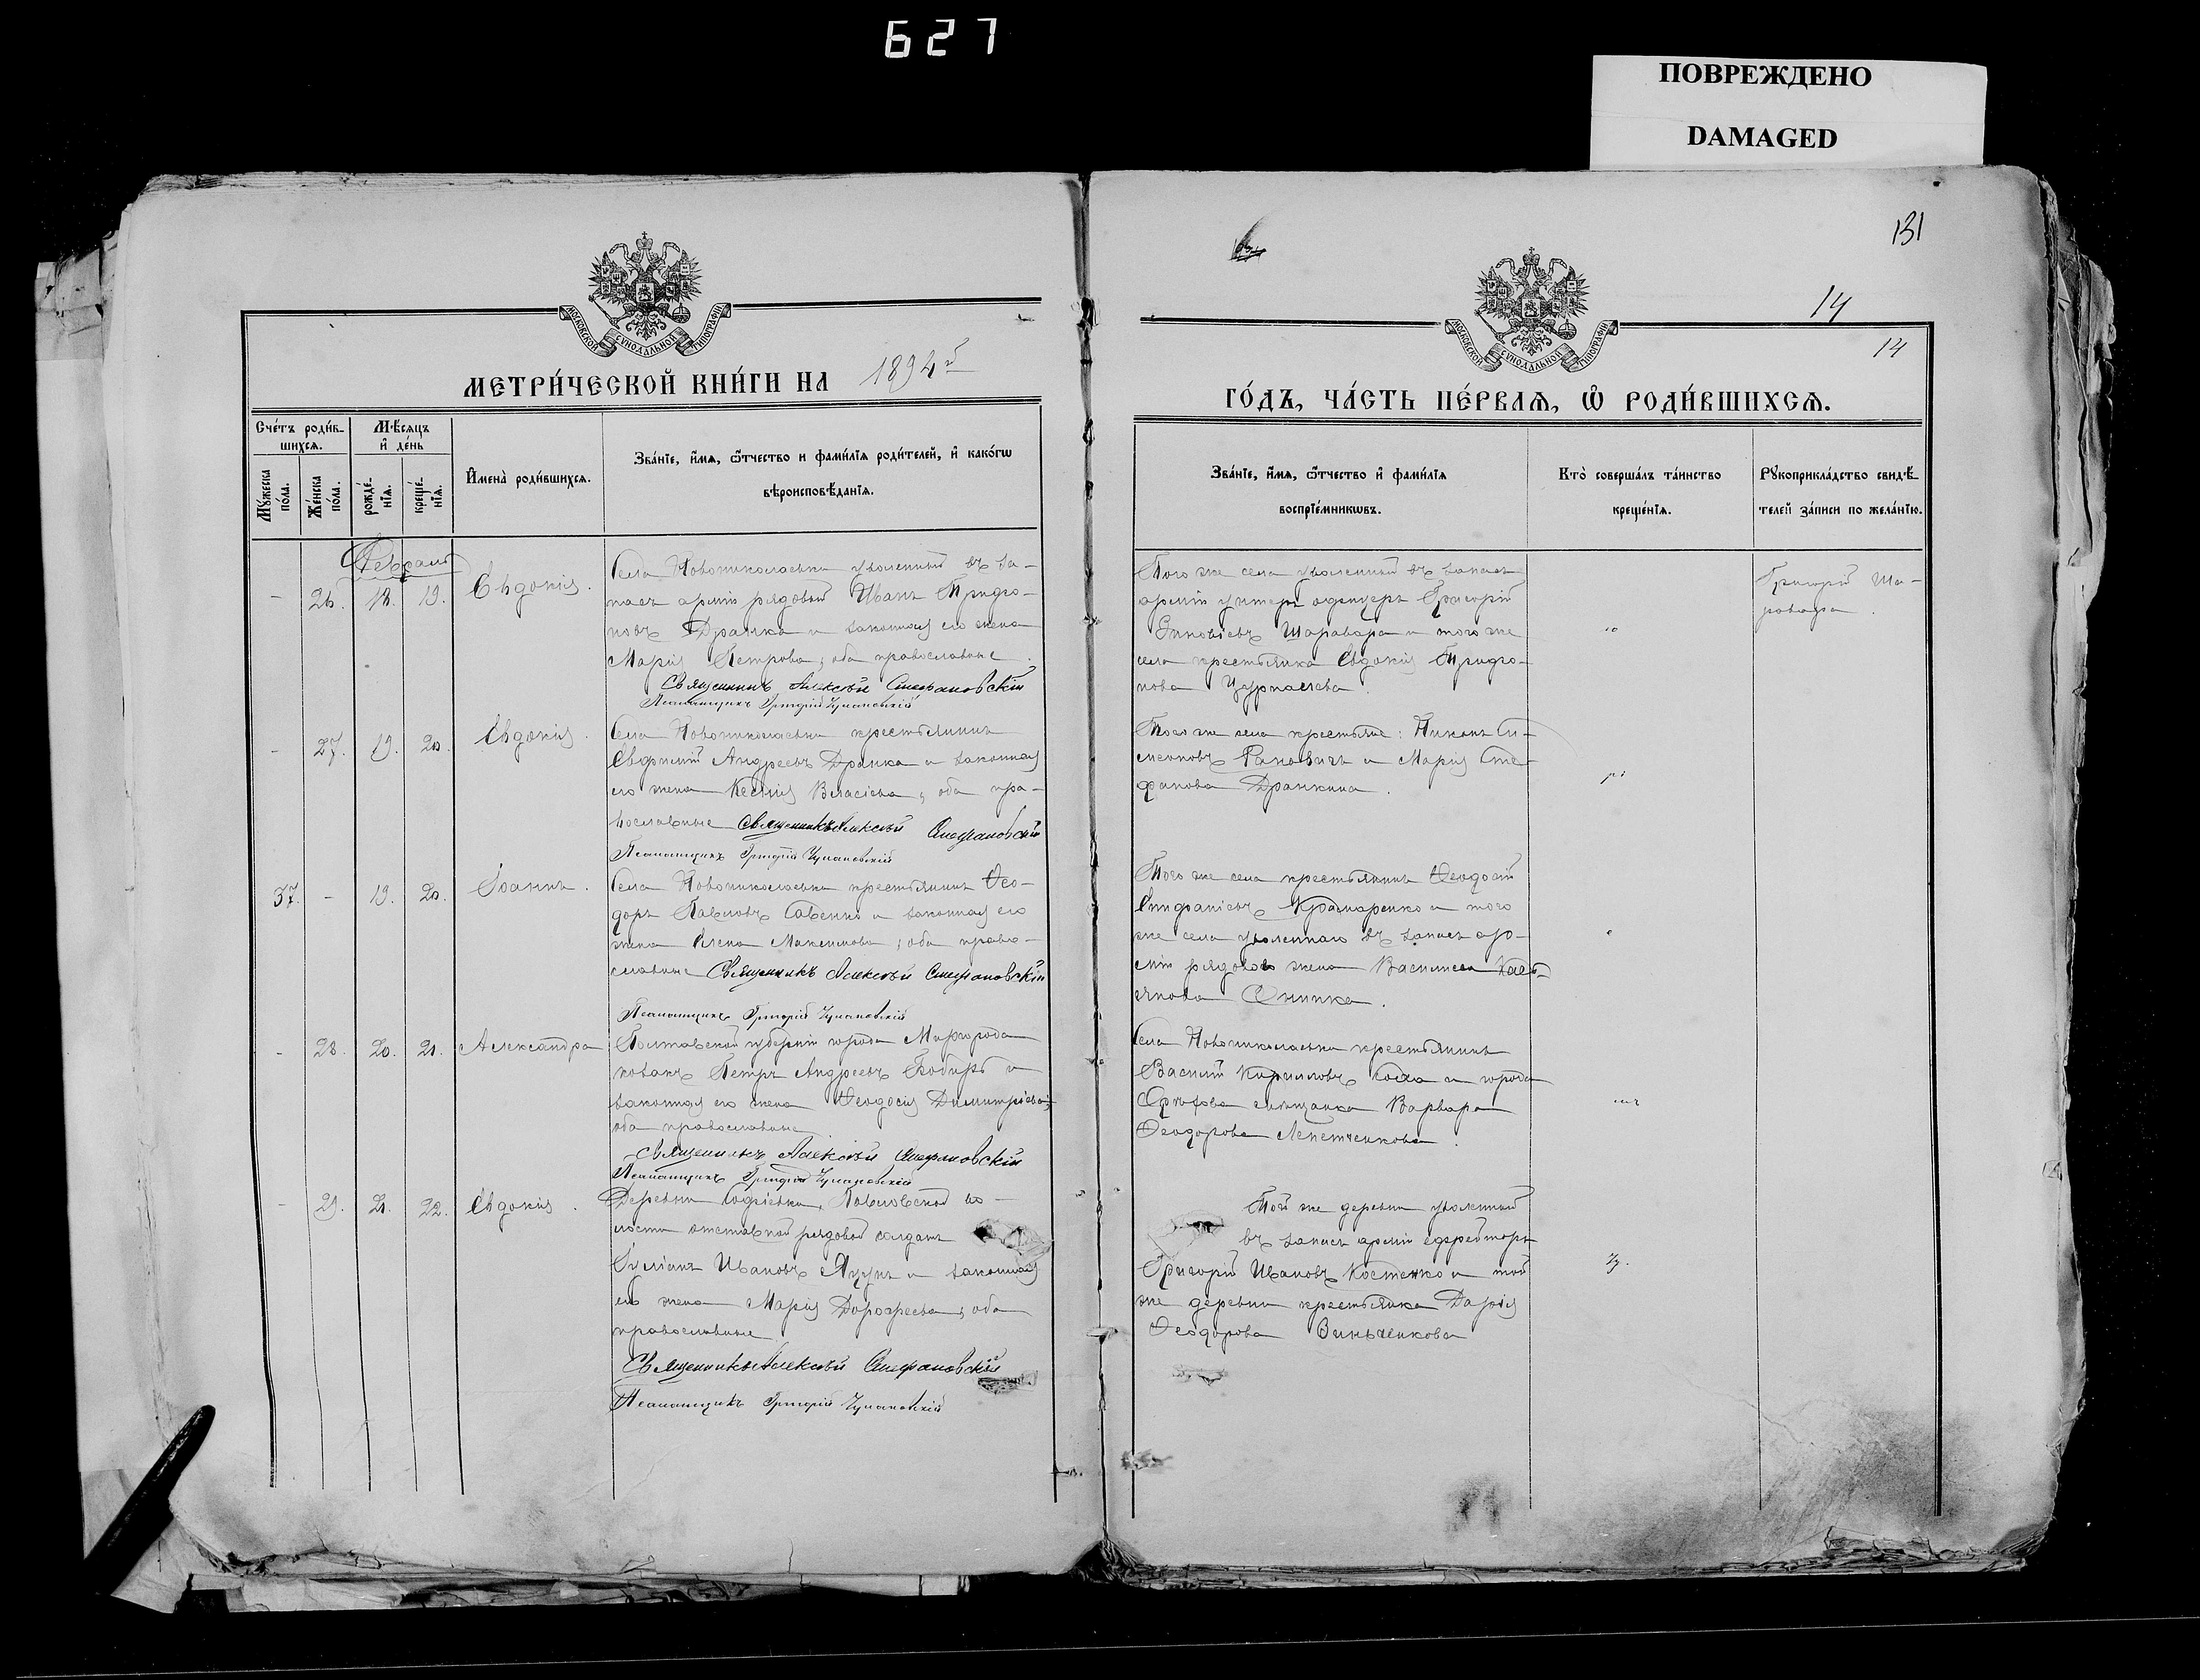 627
ПОВРЕЖДЕНО
DAMAGED
131
14
14
МОСКОВСКОЙ СУНОДАЛЬНОЙ ТИПОГРАФІИ
МОСКОВСКОЙ СУНОДАЛЬНОЙ ТИПОГРАФІИ
МЕТРИ́ЧЕСКОЙ КНИ́ГИ НА 1894й
ГО́ДЪ, ЧА́СТЬ ПЕ́РВАѦ, Ѡ҆ РОДИ́ВШИХСѦ.
Сче́тъ роди́в-
шихсѧ.
Мѣ́сѧцъ
и҆ де́нь
Мꙋ́жеска по́ла.
Же́нска по́ла.
рожде́-
нїѧ.
креще́-
нїѧ.
И҆мена̀ роди́вшихсѧ.
Зва́нїе, и҆́мѧ, ѻ҆́тчество и фами́лїѧ роди́телей, и҆ како́гѡ
вѣроисповѣ́данїѧ.
Зва́нїе, и҆́мѧ, ѻ҆́тчество и҆ фами́лїѧ
воспрїе́мникѡвъ.
Кто̀ соверша́лъ та́инство
креще́нїѧ.
Рꙋкоприкла́дство свидѣ́-
телей за́писи по жела́нїю.
Февраль
- 26. 18. 19. Евдокія.
Села Новониколаевки уволенный въ за-
пасъ арміи рядовый Иванъ Трифо-
новъ Дранка и законная его жена
Марія Петрова, оба православные.
Священникъ Алексѣй Стефановскій
Псаломщикъ Григорій Чумановскій
Того же села уволенный въ запасъ
арміи унтеръ офицеръ Григорій
Зиновіевъ Шаравара и того же
села крестьянка Евдокія Трифо-
нова
Григорій Ша-
равара.
- 27. 19. 20. Евдокія.
Села Новониколаевки крестьянинъ
Евфимій Андреевъ Дранка и законная
его жена Ксенія Власіева, оба пра-
вославные Священникъ Алексѣй Стефановскій
Псаломщикъ Григорій Чумановскій
Того же села крестьяне: Никонъ Си-
меоновъ и Марія Сте-
фанова Дранкина.
37. - 19. 20. Іоаннъ.
Села Новониколаевки крестьянинъ Ѳео-
доръ Павловъ Савенко и законная его
жена Елена Максимова, оба право-
славные Священникъ Алексѣй Стефановскій
Псаломщикъ Григорій Чумановскій
Того же села крестьянинъ Ѳеодосій
Епифаніевъ Крамаренко и того
же села уволеннаго въ запасъ ар-
міи рядоваго жена Василисса
Онипка.
- 28. 20. 21. Александра
Полтавской губерніи города Миргорода
козакъ Петръ Андреевъ и
законная его жена Ѳеодосія Димитріева,
оба православные
Священникъ Алексѣй Стефановскій
Псаломщикъ Григорій Чумановскій
Села Новониколаевки крестьянинъ
Василій Кирилловъ и города
Орѣхова мѣщанка Варвара
Ѳеодорова Лепетченкова.
- 29. 21. 22. Евдокія.
Деревни Софіевки, Павловской во-
лости отставной рядовой солдатъ
Іуліанъ Ивановъ Яцунъ и законная
его жена Марія Дорофеева, оба
православные
Священникъ Алексѣй Стефановскій
Псаломщикъ Григорій Чумановскій
Той же деревни уволенный
въ запасъ арміи ефрейторъ
Григорій Ивановъ Костенко и той
же деревни крестьянка Дарія
Ѳеодорова Винниченкова